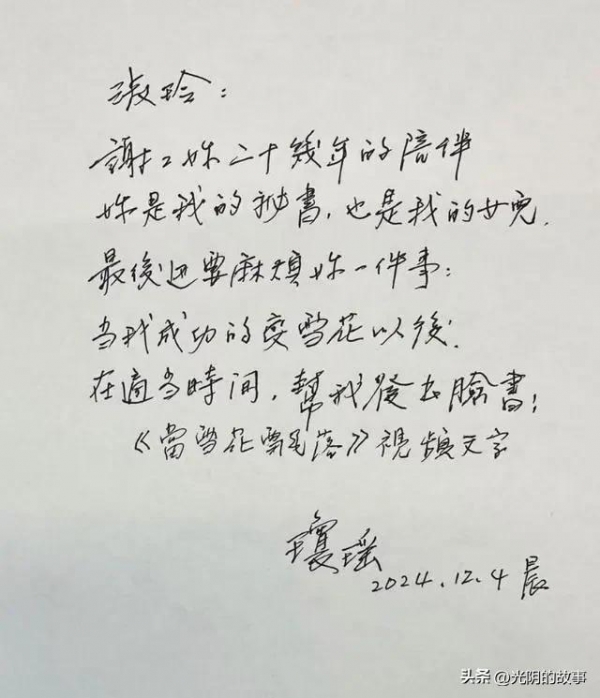 淑玲：
謝謝妳二十幾年的陪伴
妳是我的秘書，也是我的女兒.
最後还要麻煩妳一件事：
当我成功的变雪花以後.
在適当時间，幫我發出臉書：
《當雪花飄落》視頻文字
瓊瑤
2024.12.4 晨
头条 @光阴的故事